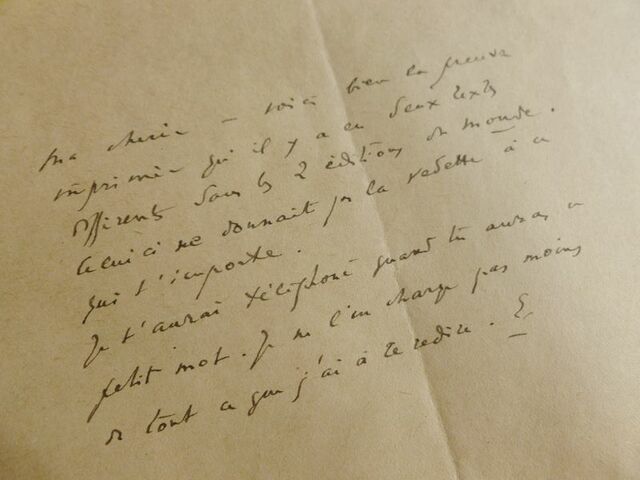 ma chérie – voici bien la preuve
imprimée qu'il y a eu deux textes
différents dans les 2 éditions du monde.
Celui ci ne donnait pas la vedette à ce
qui t'importe.
Je t'aurai téléphoné quand tu auras ce
petit mot. Je ne l'en charge pas moins
de tout ce que j'ai à te redire. E